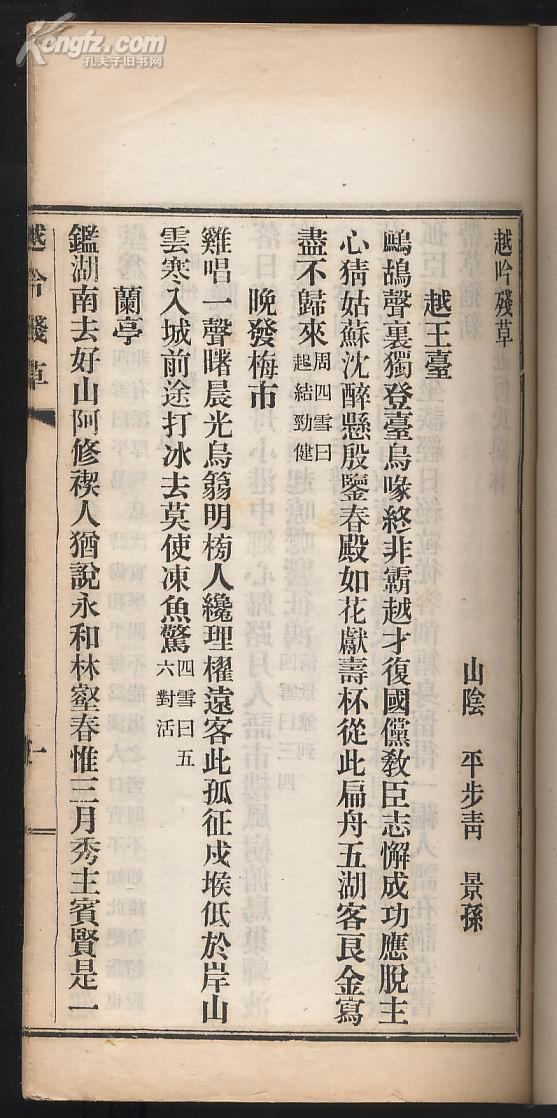 Kongfz.com
孔夫子旧书网
越吟殘草
山陰 平步青 景孫
越王臺
鷓鴣聲裏獨登臺烏喙終非霸越才復國儻敎臣志懈成功應脫主
心猜姑蘇沈醉懸殷鑒春殿如花獻壽杯從此扁舟五湖客良金寫
盡不歸來周四雪曰起結勁健
晚發梅市
雞唱一聲曙晨光烏篛明榜人纔理櫂遠客此孤征戍堠低於岸山
雲寒入城前途打冰去莫使凍魚驚四雪曰五六對活
蘭亭
鑑湖南去好山阿修禊人猶說永和林壑春惟三月秀主賓賢是一
越吟殘草
一